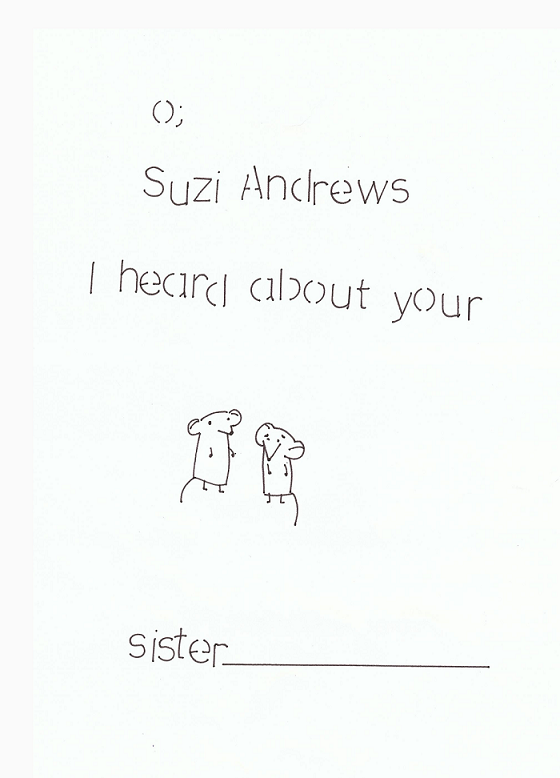 O;
Suzi Andrews
I heard about your
sister